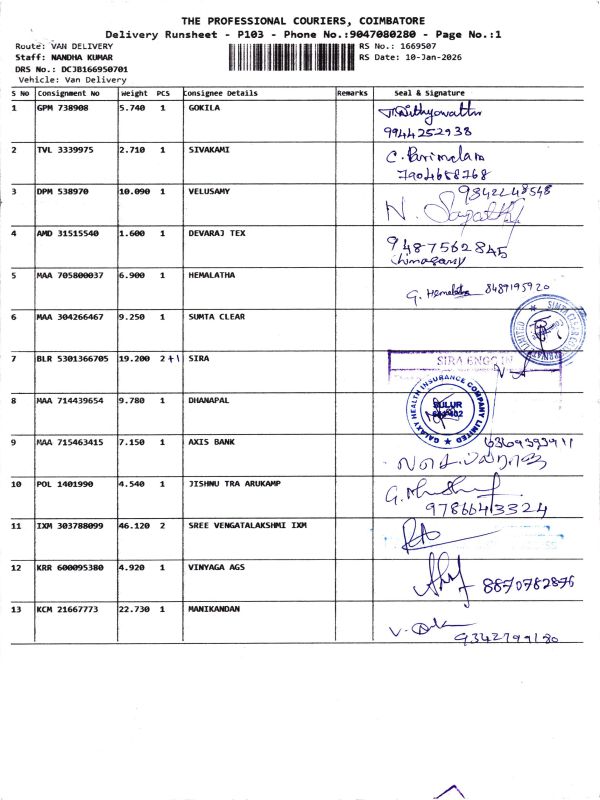 THE PROFESSIONAL COURIERS, COIMBATORE
Delivery Runsheet - P103 - Phone No.:9047080280 - Page No.:1
Route: VAN DELIVERY RS No.: 1669507
Staff: NANDHA KUMAR RS Date: 10-Jan-2026
DRS No.: DCJB166950701
Vehicle: Van Delivery
S No Consignment No Weight PCS Consignee Details Remarks Seal & Signature
1 GPM 738908 5.740 1 GOKILA
9944252938
2 TVL 3339975 2.710 1 SIVAKAMI C. Parimelam
7904688768
3 DPM 538970 10.090 1 VELUSAMY 9342248548
N.
4 AMD 31515540 1.600 1 DEVARAJ TEX 9487562845
5 MAA 705800037 6.900 1 HEMALATHA G. Hemalatha 8489195920
6 MAA 304266467 9.250 1 SUMTA CLEAR
SIMTA CLEAR
7 BLR 5301366705 19.200 2+1 SIRA SIRA ENGG IN
8 MAA 714439654 9.780 1 DHANAPAL
GALAXY HEALTH INSURANCE COMPANY LIMITED
SULUR
9 MAA 715463415 7.150 1 AXIS BANK 6369393911
10 POL 1401990 4.540 1 JISHNU TRA ARUKAMP
9786643324
11 IXM 303788099 46.120 2 SREE VENGATALAKSHMI IXM
12 KRR 600095380 4.920 1 VINYAGA AGS 8870782876
13 KCM 21667773 22.730 1 MANIKANDAN V.
9342799180